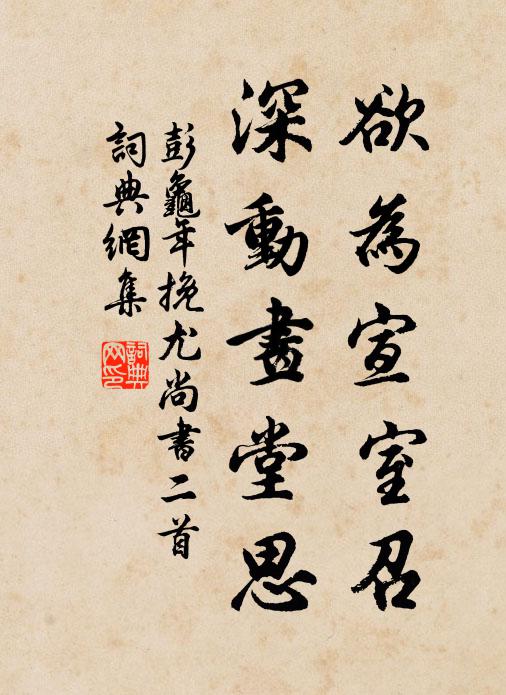 欲為宣室召
深動畫堂思
彭龜年挽尤尚書二首
詞典網集
詞典網印